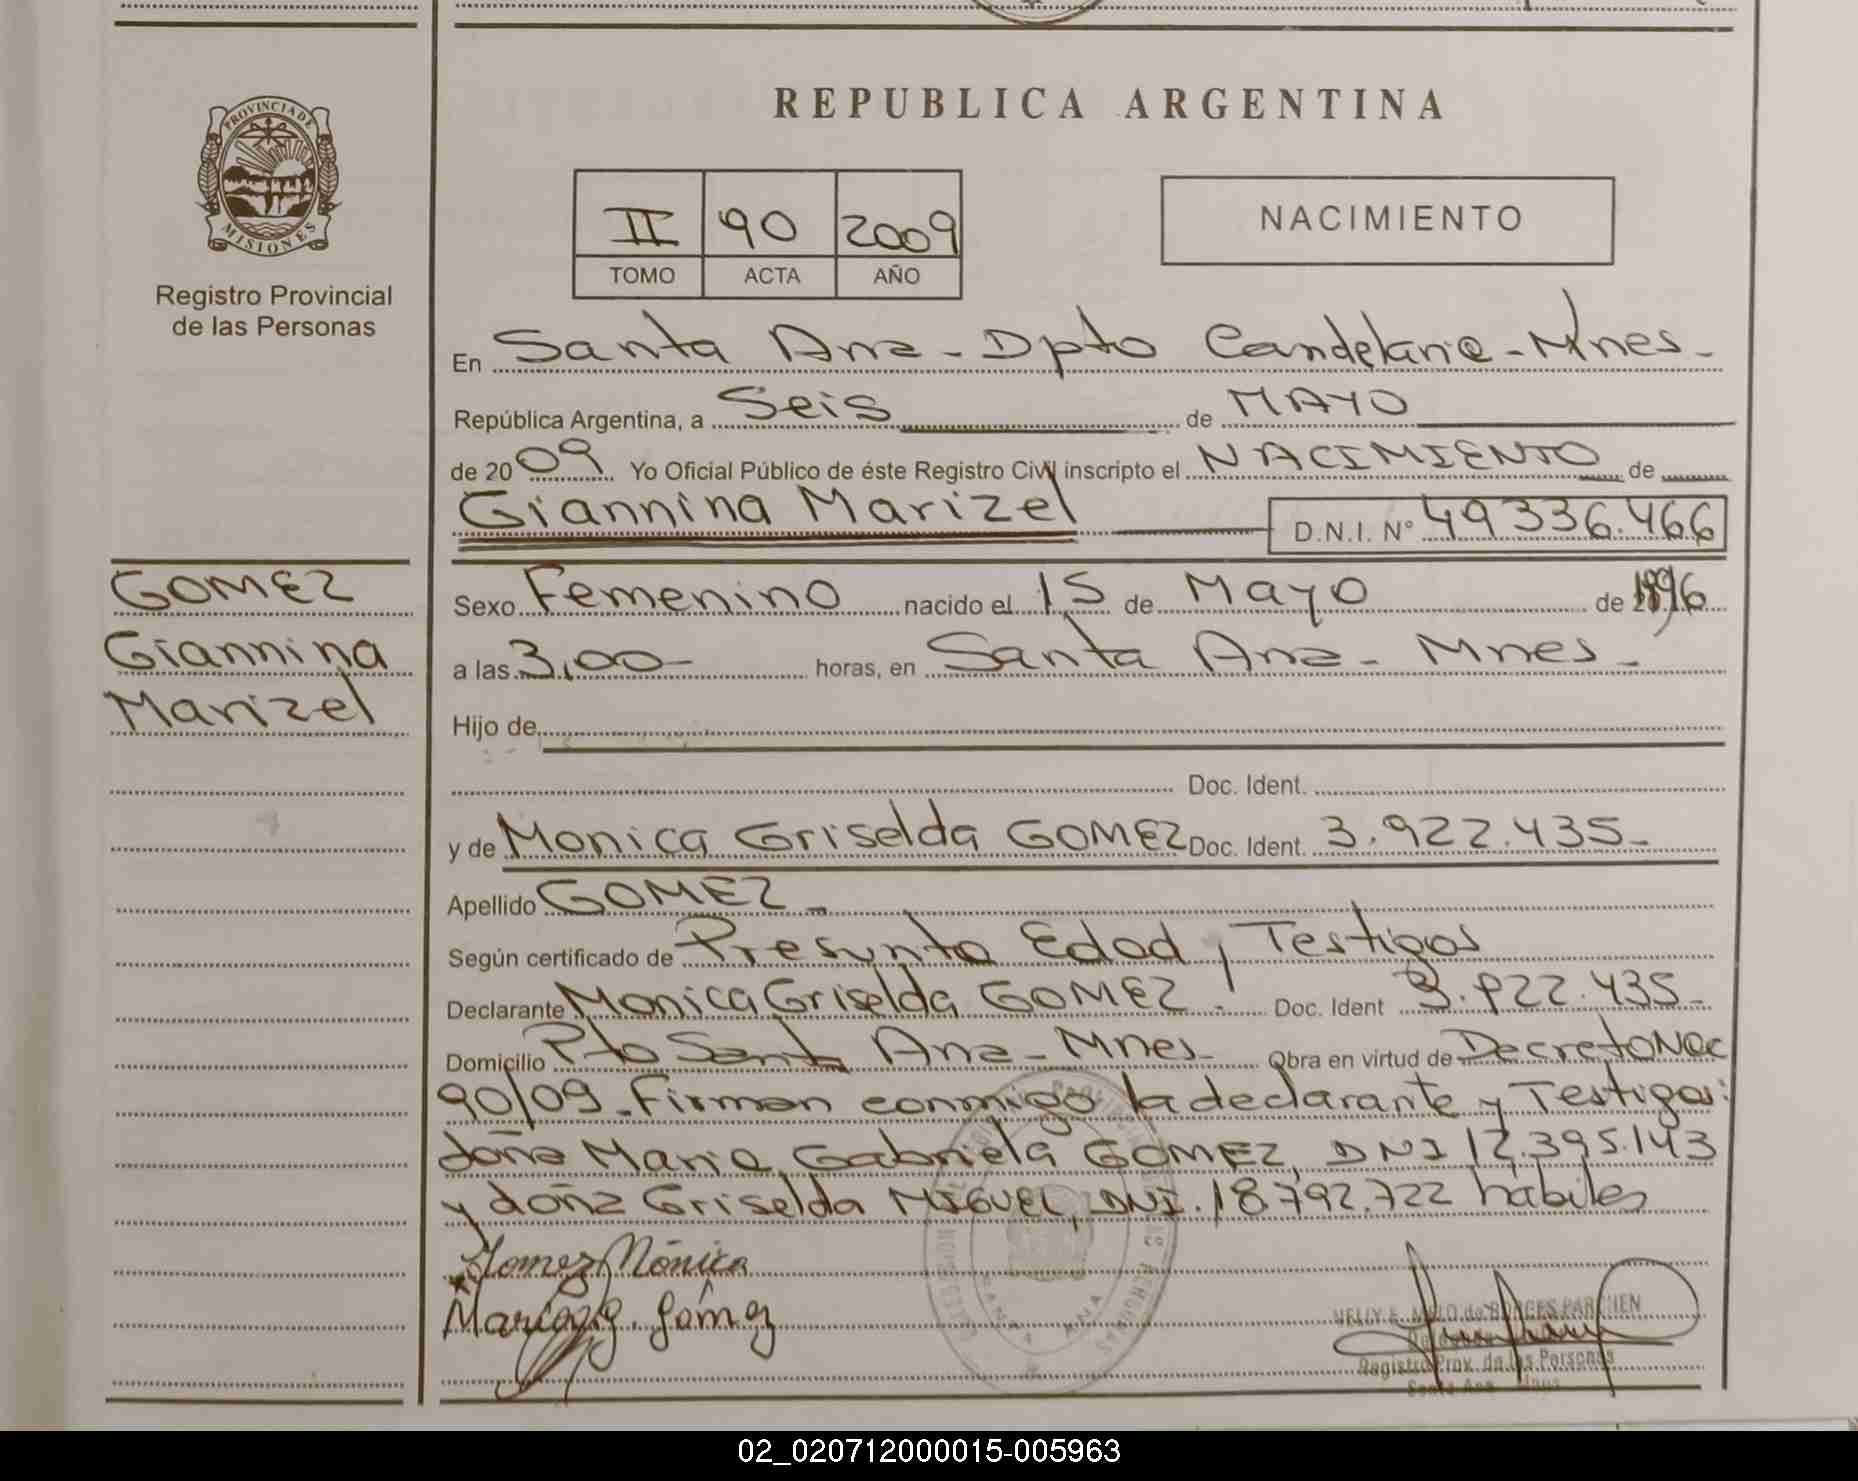 PROVINCIA DE
MISIONES
Registro Provincial
de las Personas
REPUBLICA ARGENTINA
II 90 2009
TOMO ACTA AÑO
NACIMIENTO
En Santa Ana - Dpto Candelaria - Mnes -
República Argentina, a Seis de MAYO
de 2009 Yo Oficial Público de éste Registro Civil inscripto el NACIMIENTO de
Giannina Marizel D.N.I. Nº 49336.466
GOMEZ
Giannina
Marizel
Sexo Femenino nacido el 15 de Mayo de 1996
a las 3,00 - horas, en Santa Ana - Mnes -
Hijo de
Doc. Ident.
y de Monica Griselda GOMEZ Doc. Ident. 3.922.435 -
Apellido GOMEZ -
Según certificado de Presunta Edad y Testigos
Declarante Monica Griselda GOMEZ. Doc. Ident 3.922.435 -
Domicilio Pto Santa Ana - Mnes - Obra en virtud de Decreto Nac
90/09. Firman conmigo la declarante y Testigos:
doña Maria Gabriela GOMEZ, DNI 12.395.143
y doña Griselda MIGUEL, DNI. 18.792.722 hábiles
Gomez Mónica
Maria G. Gómez
NELLY E. MELO de BORGES PARCHEN
Registro Prov. de las Personas
Santa Ana - Mnes
SANTA ANA
02_020712000015-005963